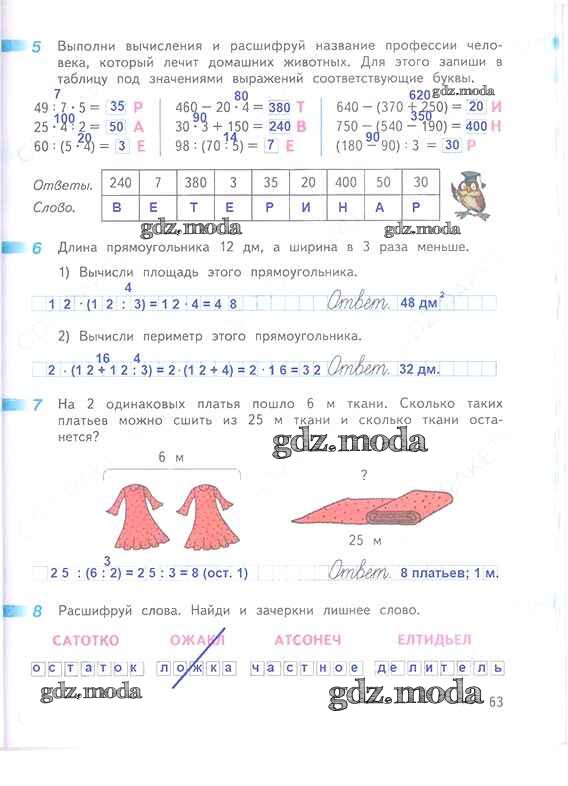 5 Выполни вычисления и расшифруй название профессии чело-
века, который лечит домашних животных. Для этого запиши в
таблицу под значениями выражений соответствующие буквы.
7 80 620 gdz.moda
49 : 7 · 5 = 35 Р 460 − 20 · 4 = 380 Т 640 − (370 + 250) = 20 И
100 90 350
25 · 4 : 2 = 50 А 30 · 3 + 150 = 240 В 750 − (540 − 190) = 400 Н
20 14 90
60 : (5 · 4) = 3 Е 98 : (70 : 5) = 7 Е (180 − 90) : 3 = 30 Р
Ответы. 240 7 380 3 35 20 400 50 30
Слово. В Е Т Е Р И Н А Р
gdz.moda gdz.moda
6 Длина прямоугольника 12 дм, а ширина в 3 раза меньше.
1) Вычисли площадь этого прямоугольника.
4
12 · (12 : 3) = 12 · 4 = 48 Ответ. 48 дм²
2) Вычисли периметр этого прямоугольника.
16 4
2 · (12 + 12 : 3) = 2 · (12 + 4) = 2 · 16 = 32 Ответ. 32 дм.
7 На 2 одинаковых платья пошло 6 м ткани. Сколько таких
платьев можно сшить из 25 м ткани и сколько ткани оста-
нется?
gdz.moda
6 м ?
gdz.moda
25 м
3
25 : (6 : 2) = 25 : 3 = 8 (ост. 1) Ответ. 8 платьев; 1 м.
8 Расшифруй слова. Найди и зачеркни лишнее слово.
САТОТКО ОЖАКЛ АТСОНЕЧ ЕЛТИДЬЕЛ
остаток ложка частное делитель
gdz.moda gdz.moda gdz.moda
63